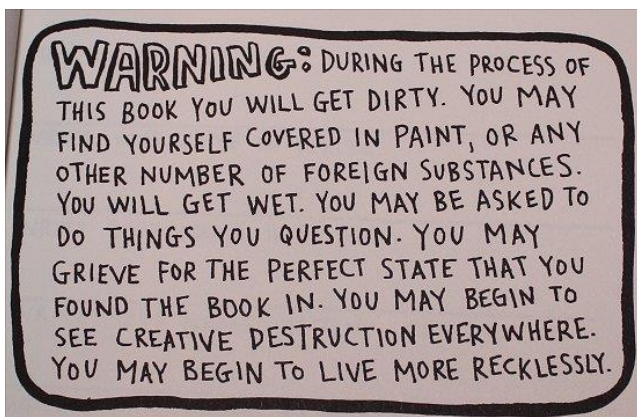 WARNING: DURING THE PROCESS OF
THIS BOOK YOU WILL GET DIRTY. YOU MAY
FIND YOURSELF COVERED IN PAINT, OR ANY
OTHER NUMBER OF FOREIGN SUBSTANCES.
YOU WILL GET WET. YOU MAY BE ASKED TO
DO THINGS YOU QUESTION. YOU MAY
GRIEVE FOR THE PERFECT STATE THAT YOU
FOUND THE BOOK IN. YOU MAY BEGIN TO
SEE CREATIVE DESTRUCTION EVERYWHERE.
YOU MAY BEGIN TO LIVE MORE RECKLESSLY.